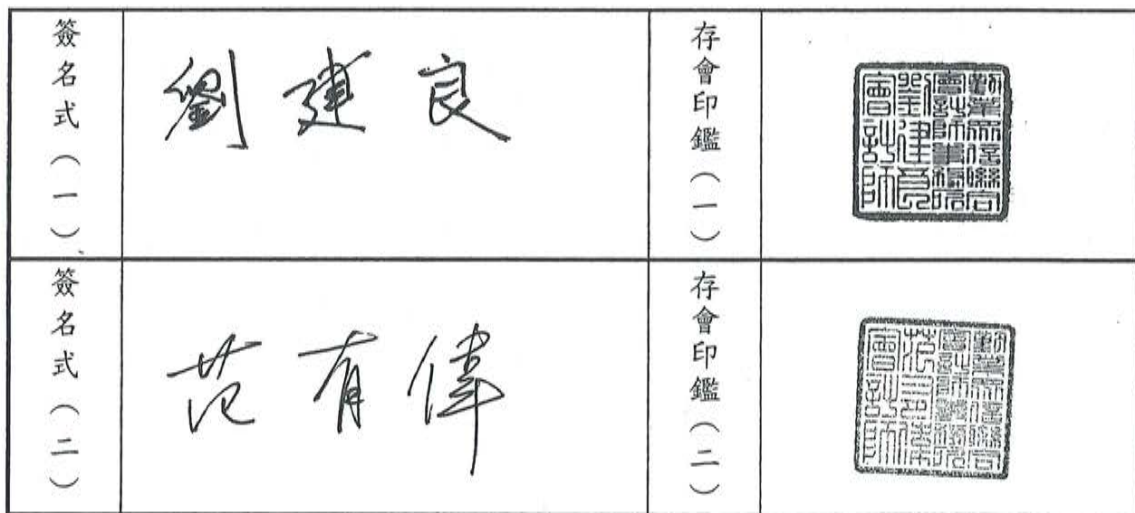 簽名式（一）
劉建良
存會印鑑（一）
勤業眾信聯合
會計師事務所
劉建良
會計師
簽名式（二）
范有偉
存會印鑑（二）
勤業眾信聯合
會計師事務所
范有偉
會計師